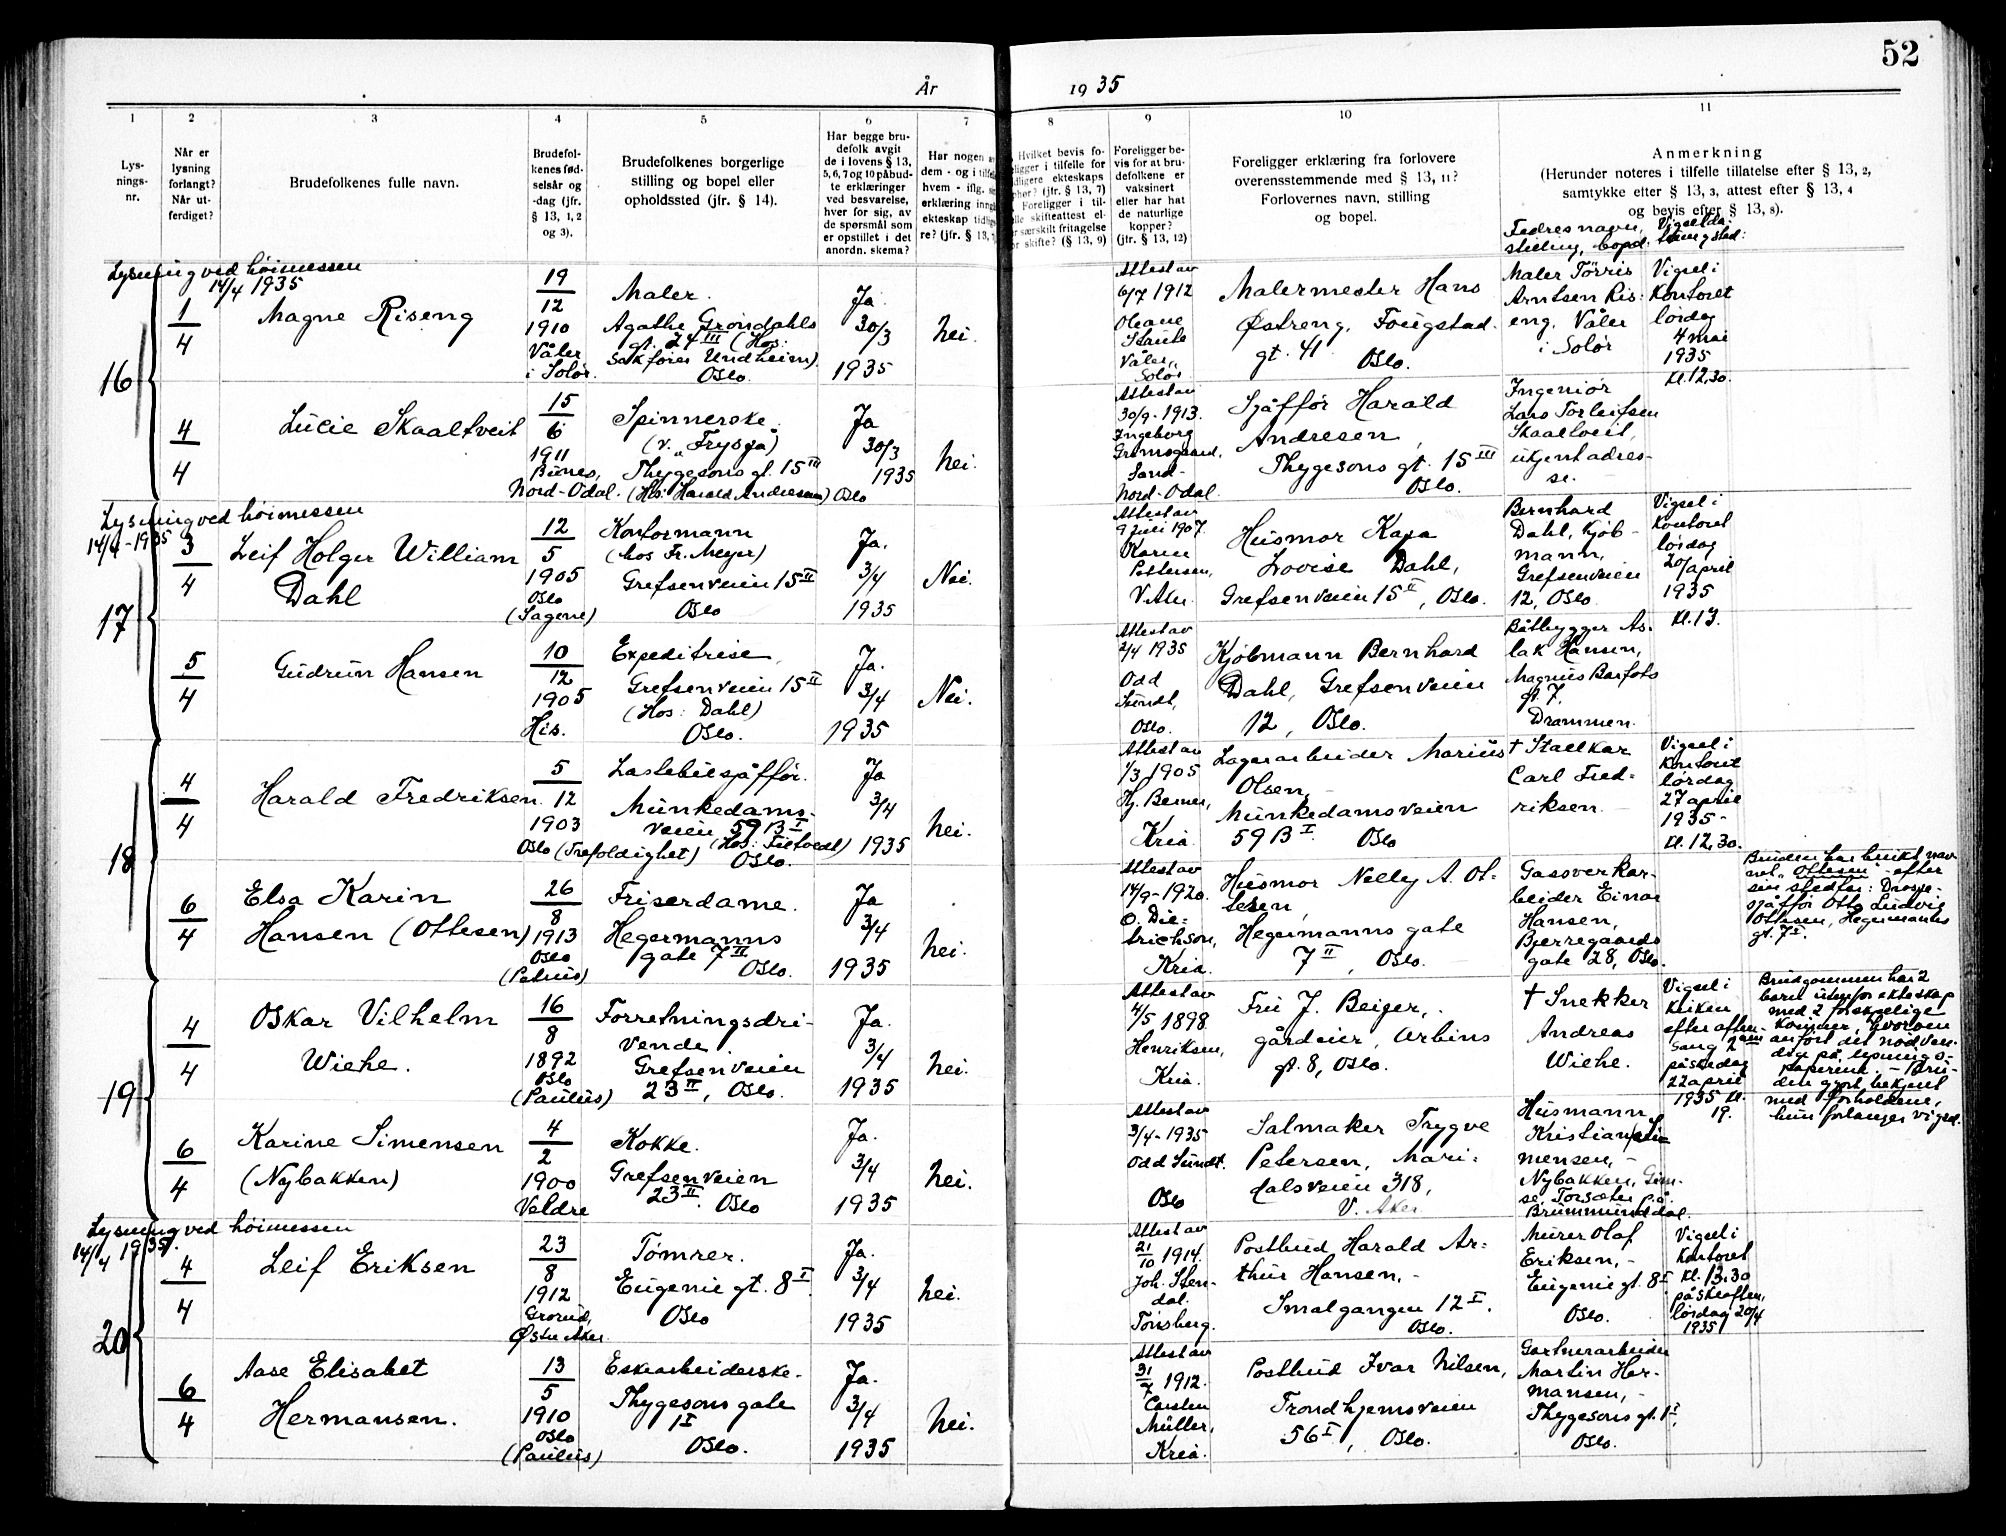 52
År
19 35
1
2
3
4
5
6
7
8
9
10
11
Lys-
nings-
nr.
Når er
lysning
forlangt?
Når ut-
ferdiget?
Brudefolkenes fulle navn.
Brudefol-
kenes fød-
selsår og
-dag (jfr.
§ 13, 1, 2
og 3).
Brudefolkenes borgerlige
stilling og bopel eller
opholdssted (jfr. § 14).
Har begge bru-
defolk avgit
de i lovens § 13,
5, 6, 7 og 10 påbud-
te erklæringer
ved besvarelse,
hver for sig, av
de spørsmål som
er opstillet i det
anordn. skema?
Har nogen av
dem - og i tilfelle
hvem - iflg. sin
erklæring inngått
ekteskap tidlige-
re? (jfr. § 13,
Hvilket bevis fo-
religger i tilfelle for
tidligere ekteskaps
ophør? (jfr. § 13, 7)
Foreligger i til-
felle skifteattest el-
ler særskilt fritagelse
for skifte? (§ 13, 9)
Foreligger be-
vis for at bru-
defolkene er
vaksinert
eller har hat
de naturlige
kopper?
(jfr. § 13, 12)
Foreligger erklæring fra forlovere
overensstemmende med § 13, 11?
Forlovernes navn, stilling
og bopel.
Anmerkning
(Herunder noteres i tilfelle tillatelse efter § 13, 2,
samtykke efter § 13, 3, attest efter § 13, 4
og bevis efter § 13, 8).
Fedres navn,
stilling, bopel.
Lysning ved høimessen
14/4 1935
16
1/4
Magne Riseng
19/12
1910
Våler
i Solør.
Maler.
Agathe Grøndahls
gt. 24 III (Hos:
Sakfører Undheim).
Oslo.
Ja
30/3
1935
Nei.
Attest av
6/7 1912
Våler,
Solør
Malermester Hans
Østreng, Fougstad.
gt. 41. Oslo.
Maler Tørris
Arntsen Ris-
eng, Våler
i Solør
Vigsel i
Kontoret
lørdag
4 mai
1935
kl. 12,30.
4/4
Lucie Skaaltveit
15/6
1911
Nord-Odal.
Spinnerske
(v. „Frysja")
Thygesons gt. 15 III
(Hos: Harald Andresen) Oslo
Ja
30/3
1935
Nei.
Attest av
30/9 - 1913.
Ingeborg
Sand-
Nord-Odal.
Sjåffør Harald
Andresen,
Thygesons gt. 15 III
Oslo.
Ingeniør
Lars Torleifsen
Skaaltveit,
ukjent adres-
se.
Lysning ved høimessen
14/4 - 1935
17
3/4
Leif Holger William
Dahl
12/5
1905
Oslo
(Sagene)
Kontormann
(hos Fr. Meyer)
Grefsenveien 15 II
Oslo
Ja.
3/4
1935
Nei.
Attest av
9 juli 1907.
Karen
Pettersen,
V. Aker.
Husmor Kaja
Lovise Dahl,
Grefsenveien 15 II, Oslo.
Bernhard
Dahl, Kjøb-
mann,
Grefsenveien
12, Oslo.
Vigsel i
Kontoret
lørdag
20/april
1935
kl. 13.
5/4
Gudrun Hansen
10/12
1905
His.
Expeditrise
Grefsenveien 15 II
(Hos: Dahl)
Oslo.
Ja.
3/4
1935
Nei.
Attest av
2/4 1935
Odd
Sundt,
Oslo.
Kjøbmann Bernhard
Dahl, Grefsenveien
12, Oslo.
Båtbygger As-
lak Hansen,
Magnus Barfots
gt. 7.
Drammen.
18
4/4
Harald Fredriksen
5/12
1903
Oslo (Trefoldighet)
Lastebilsjåffør.
Munkedams-
veien 59 B I
Oslo.
Ja
3/4
1935
Nei.
Attest av
1/3 1905
Hj. Berner,
Kria.
Lagerarbeider Marius
Olsen,
Munkedamsveien
59 B I Oslo
† Stallkar
Carl Fred-
riksen.
Vigsel i
Kontoret
lørdag
27 april
1935 -
kl. 12,30.
6/4
Elsa Karin
Hansen (Ottesen)
26/8
1913
Oslo
(Petrus)
Friserdame.
Hegermanns
gate 7 II
Oslo.
Ja
3/4
1935
Nei.
Attest av
14/9 - 1920.
O. Die-
trichson,
Kria.
Husmor Nelly A. Ot-
tesen,
Hegermanns gate
7 II, Oslo.
Gassverkar-
beider Einar
Hansen,
Bjerregaards
gate 28, Oslo.
Bruden har brukt nav-
net „Ottesen" efter
sin stedfar: Drosje-
sjåffør Otto Ludvig
Ottesen, Hegermanns
gt. 7 I.
19
4/4
Oskar Vilhelm
Wiehe.
16/8
1892
Oslo
(Paulus)
Forretningsdri-
vende.
Grefsenveien
23 II, Oslo.
Ja.
3/4
1935
Nei.
Attest av
4/5 1898
Henriksen,
Kria.
Fru J. Beiger,
gårdeier, Arbins
gt. 8, Oslo.
† Snekker
Andreas
Wiehe.
Vigsel i
kirken
efter aften-
sang 2
påskedag
22 april
1935 kl.
19.
Brudgommen har 2
barn utenfor ekteskap
med 2 forskjellige
kvinner, hvorom
anført det nødven-
dige på lysnings-
papirene. - Bru-
den gjort bekjent
med forholdene,
hun forlanger vigsel.
6/4
Karine Simensen
(Nybakken)
4/2
1900
Veldre
Kokke.
Grefsenveien
23 II. Oslo
Ja.
3/4
1935
Nei.
Attest av
3/4 - 1935
Odd Sundt.
Oslo
Salmaker Trygve
Petersen, Mari-
dalsveien 318,
V. Aker
Husmann
Kristian Si-
mensen,
Nybakken,
Brummunddal.
Lysning ved høimessen
14/4 1935.
20
4/4
Leif Eriksen
23/8
1912
Grorud,
Østre Aker.
Tømrer.
Eugenie gt. 8 I
Oslo
Ja.
3/4
1935
Nei.
Attest av
21/10 1914.
Joh. Sten-
dal.
Tønsberg.
Postbud Harald Ar-
thur Hansen,
Smalgangen 12 I.
Oslo.
Murer Olaf
Eriksen,
Eugenie gt. 8 I
Oslo.
Vigsel i
Kontoret
kl. 13,30
påskeaften,
lørdag 20/4
1935
6/4
Aase Elisabet
Hermansen.
13/5
1910
Oslo
(Paulus)
Eskearbeiderske.
Thygesons gate
1 I
Oslo.
Ja.
3/4
1935
Nei.
Attest av
31/7 1912.
Carsten
Müller,
Kria.
Postbud Ivar Nilsen,
Trondhjemsveien
56 I, Oslo.
Gartnerarbeider
Martin Her-
mansen,
Thygesons gt. 1 I,
Oslo.